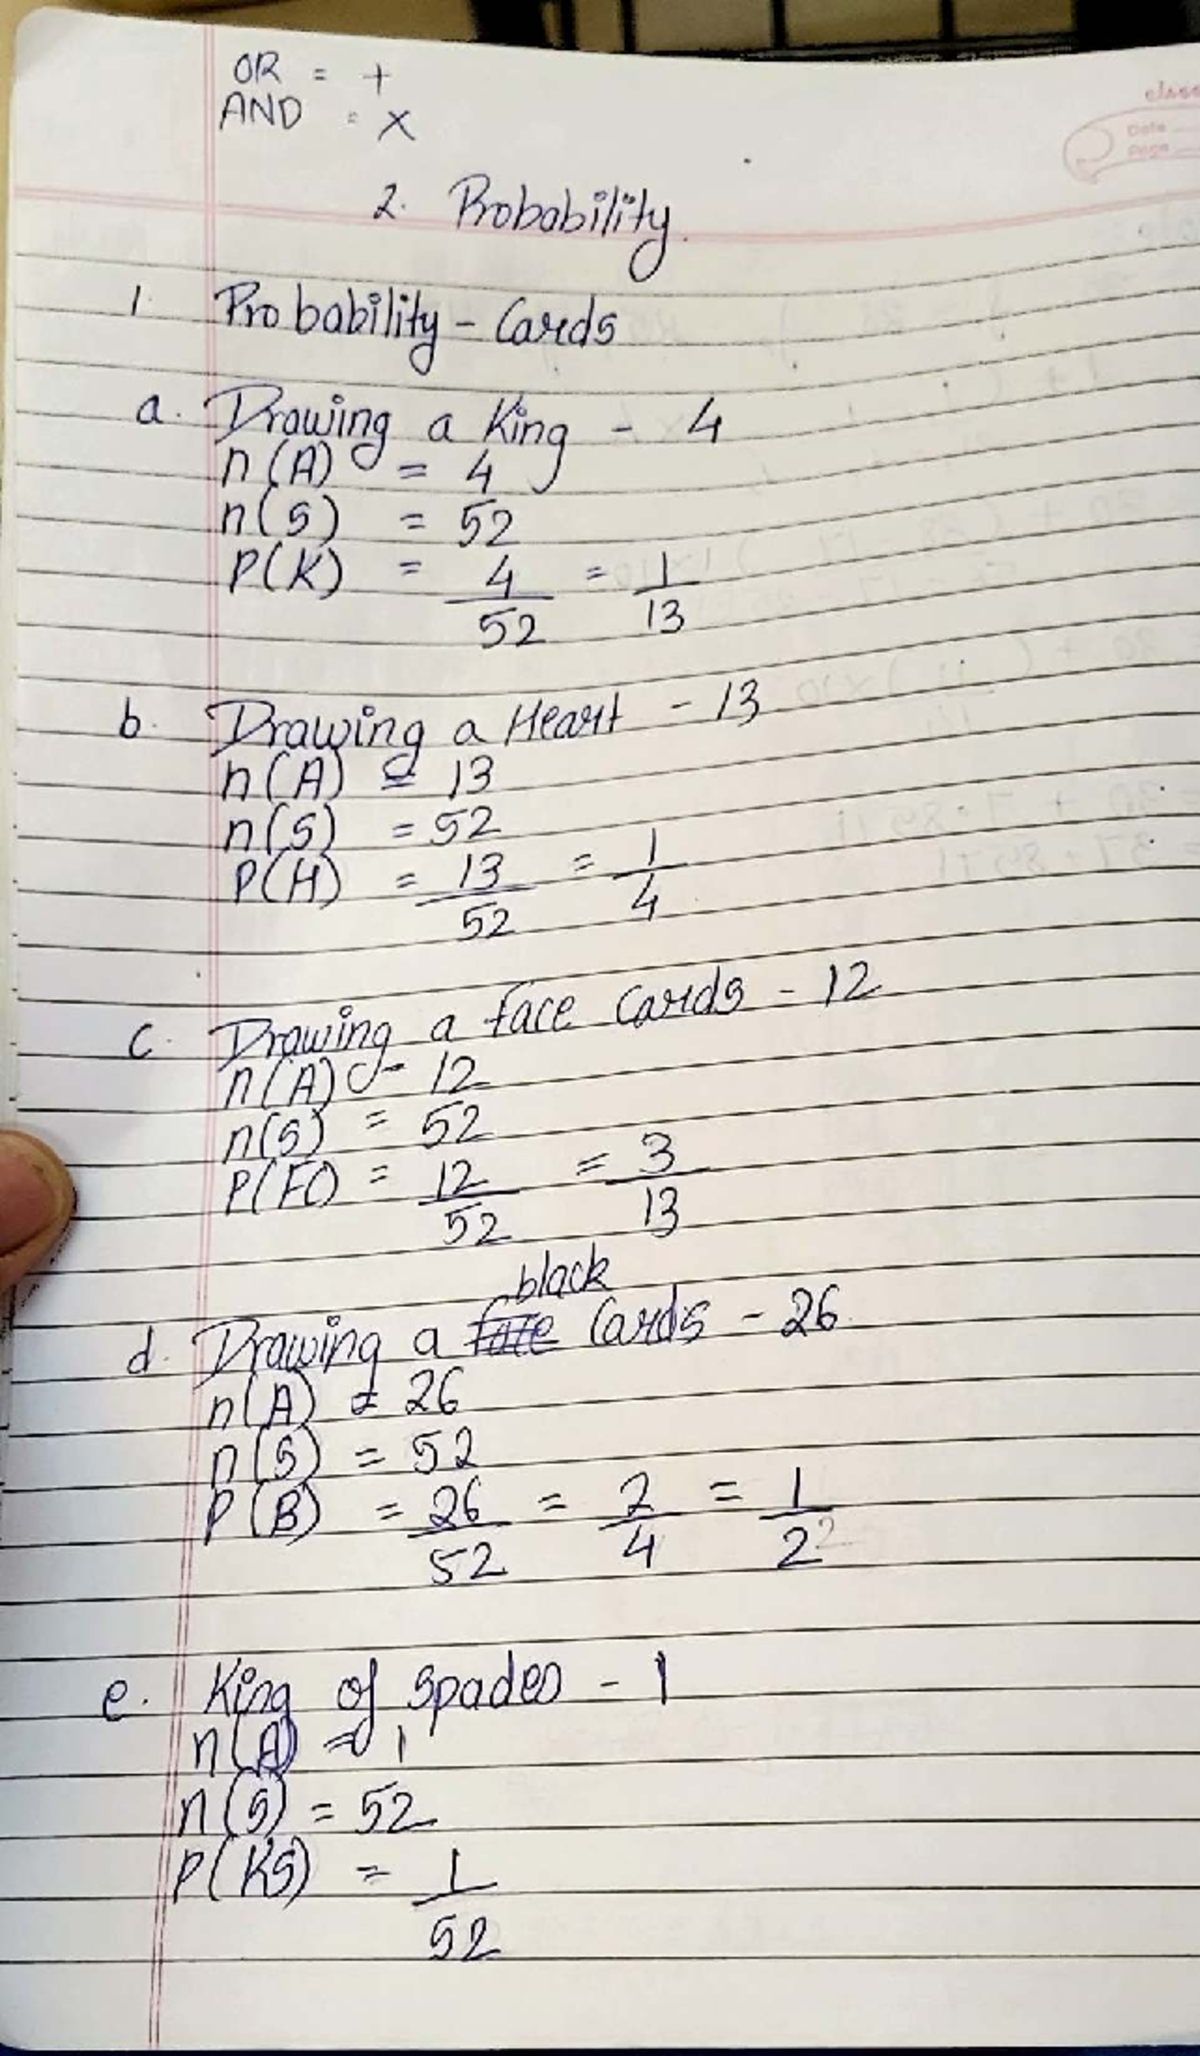 OR = +
AND = X
class
Date
Page
2. Probability.
1. Probability - Cards
a. Drawing a King - 4
n(A) = 4
n(S) = 52
P(K) = 4/52 = 1/13
b. Drawing a Heart - 13
n(A) = 13
n(S) = 52
P(H) = 13/52 = 1/4
c. Drawing a face Cards - 12
n(A) - 12
n(S) = 52
P(FC) = 12/52 = 3/13
black
d. Drawing a face Cards - 26
n(A) = 26
n(S) = 52
P(B) = 26/52 = 2/4 = 1/2
e. King of spades - 1
n(A) = 1
n(S) = 52
P(KS) = 1/52